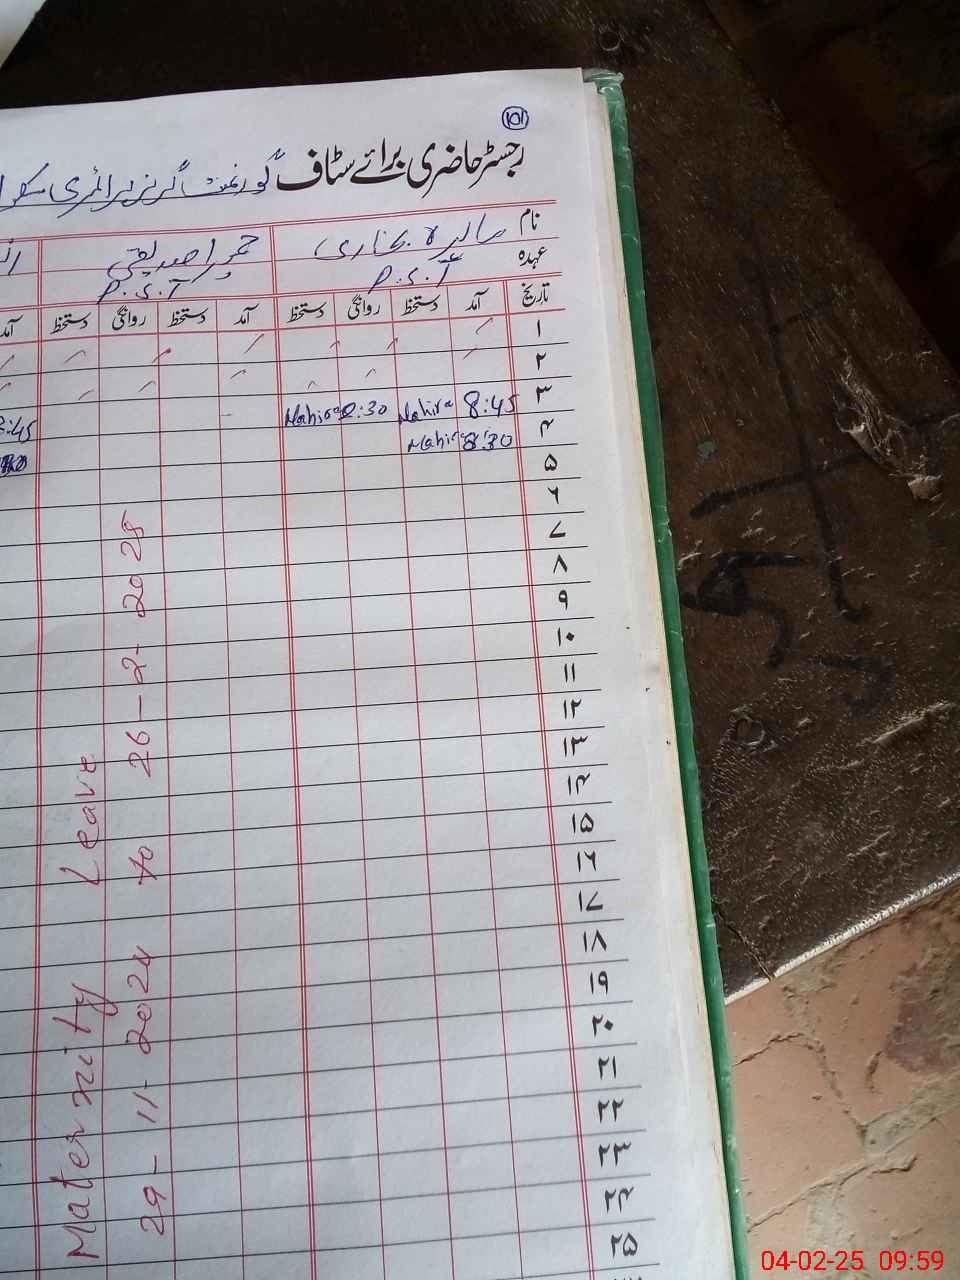 101
رجسٹر حاضری برائے سٹاف گورنمنٹ گرلز پرائمری
نام
عہدہ
P.S.T P.S.T
تاریخ آمد دستخط روانگی دستخط آمد دستخط روانگی دستخط آمد
۱
۲
۳ 8:45 Mahira 2:30 Mahira 8:45
۴ 8:30 Mahira
۵
۶
۷
۸
۹
۱۰
۱۱
۱۲
۱۳
۱۴
۱۵
۱۶
۱۷
۱۸
۱۹
۲۰
۲۱
۲۲
۲۳
۲۴
۲۵
Maternity Leave
29-11-2024 to 26-2-2025
04-02-25 09:59